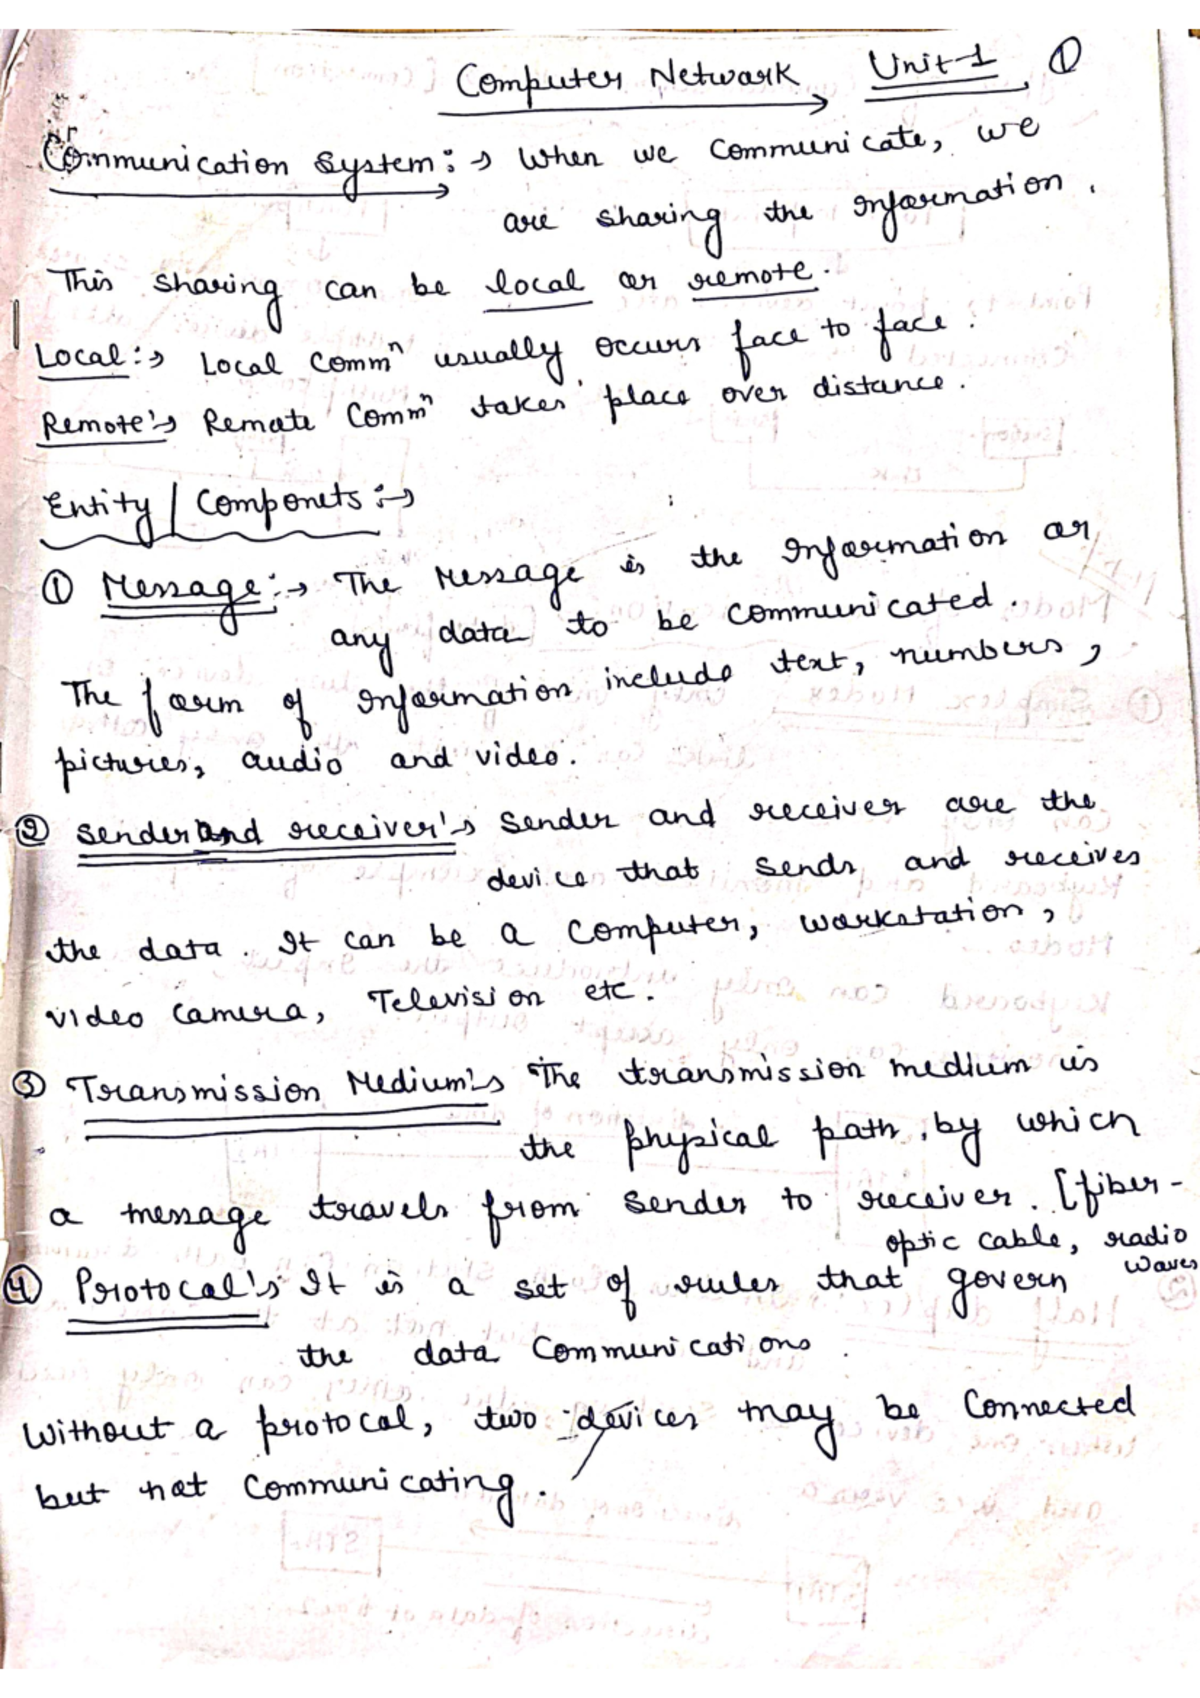 Computer Network Unit-1 ①
Communication System :→ When we communicate, we
are sharing the information.
This sharing can be local or remote.
Local :→ Local Commⁿ usually occurs face to face.
Remote :→ Remote Commⁿ takes place over distance.
Entity / Componets :→
① Message :→ The Message is the information or
any data to be communicated.
The form of information include text, numbers,
pictures, audio and video.
② Sender and receiver :→ Sender and receiver are the
device that sends and receives
the data. It can be a Computer, workstation,
video camera, Television etc.
③ Transmission Medium :→ The transmission medium is
the physical path by which
a message travels from sender to receiver. [fiber-
optic cable, radio
waves
④ Protocal :→ It is a set of rules that govern
the data Communications.
Without a protocal, two devices may be Connected
but not Communicating.